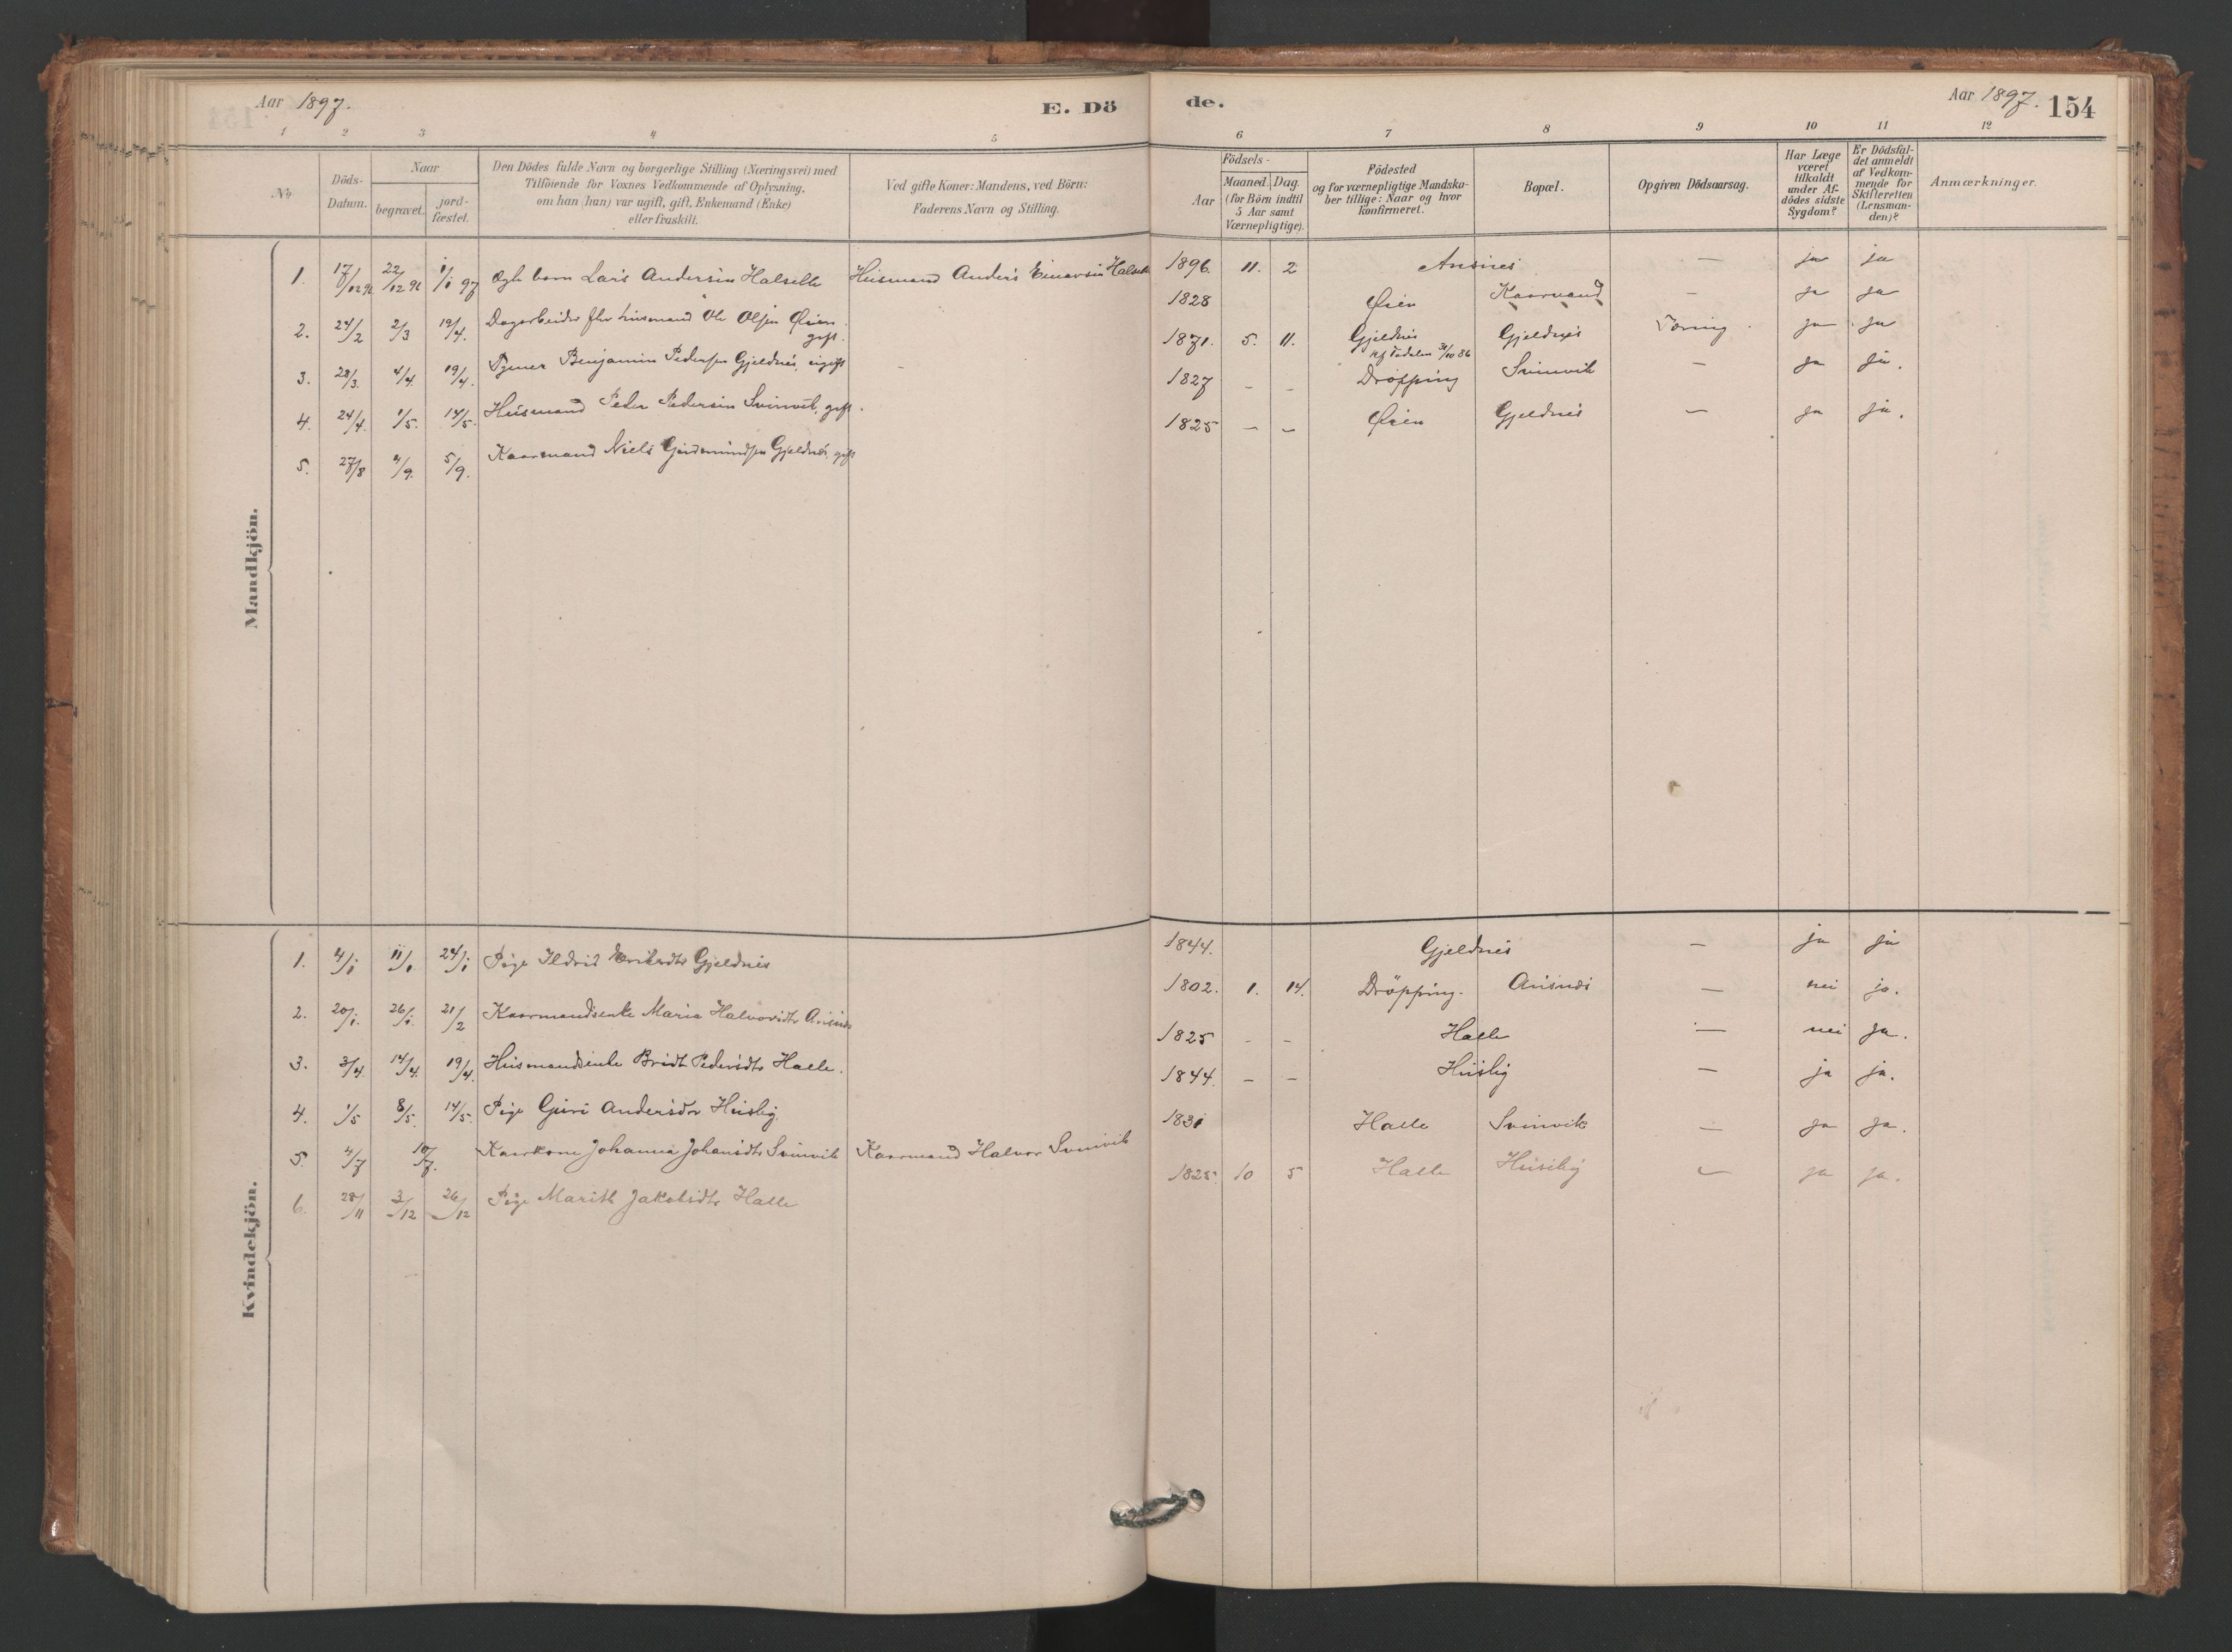 Aar 1897.
E. Dö
de.
Aar 1897.
154
1 2 3 4 5 6 7 8 9 10 11 12
No
Döds-Datum.
Naar
begravet.
jord-fæstet.
Den Dödes fulde Navn og borgerlige Stilling (Næringsvei) med
Tilföiende for Voxnes Vedkommende af Oplysning,
om han (hun) var ugift, gift, Enkemand (Enke)
eller fraskilt.
Ved gifte Koner: Mandens, ved Börn:
Faderens Navn og Stilling.
Födsels-
Aar
Maaned. Dag.
(for Börn indtil
5 Aar samt
Værnepligtige).
Födested
og for værnepligtige Mandska-
ber tillige: Naar og hvor
konfirmeret.
Bopæl.
Opgiven Dödsaarsag.
Har Læge
været
tilkaldt
under Af-
dödes sidste
Sygdom?
Er Dödsfal-
det anmeldt
af Vedkom-
mende for
Skifteretten
(Lensman-
den)?
Anmærkninger.
Mandkjön.
1. 17/12 96 22/12 96 1/1 97 Ægte barn Lars Andersen Halselle Husmand Anders Einarsen Halselle 1896. 11. 2 Ansnes — ja ja
2. 24/2 2/3 19/4. Dagarbeider fhv husmand Ole Olsen Øien gift. 1828 Øien Kaarmand — ja ja
3. 28/3. 4/4. 19/4. Benjamin Pedersen Gjeldnes, ugift – 1871. 5. 11. Gjeldnes Gjeldnes Tæring. ja ja
4. 24/4. 1/5. 14/5. Husmand Peder Pedersen Svinvik, gift. 1827 – – Drøpping Svinvik — ja ja.
5. 27/8 4/9. 5/9. Kaarmand Niels Gudmundsen Gjeldnes, gift 1825 — – Øien Gjeldnes — ja ja.
Kvindekjön.
1. 4/1 11/1 24/1 Pige Ildrid Eriksdtr Gjeldnes 1844. Gjeldnes — ja ja
2. 20/1. 26/1. 21/2 Kaarmandsenke Maria Halvorsdtr Ansnes 1802. 1. 14. Dröpping. Ansnes — nei ja.
3. 3/4. 14/4. 19/4. Husmandsenke Bridt Pedersdtr Halle. 1825 – – Halle — nei ja.
4. 1/5 8/5. 14/5. Pige Guri Andersdtr Husby. 1844. – – Husby — ja ja.
5. 4/7 10/7. Kaarkone Johanna Johansdtr Svinvik Kaarmand Halvor Svinvik 1831 Halle Svinvik — ja ja.
6. 28/11 3/12 26/12 Pige Marith Jakobsdtr Halle 1825. 10 5 Halle Husby — ja ja.